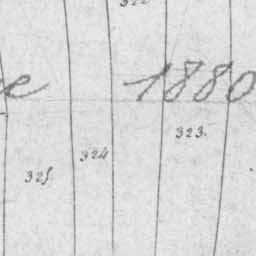 e 1880
323.
324
325